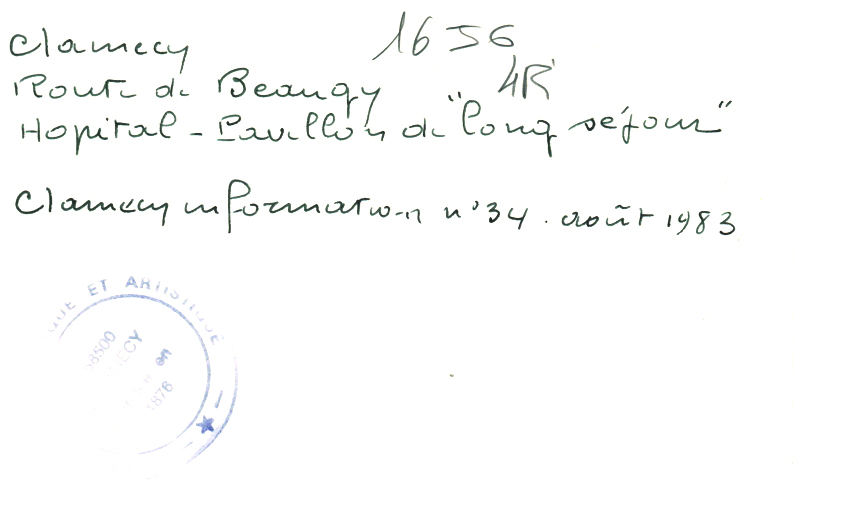 Clamecy 16 56
Route de Beaugy 4R
Hopital - Pavillon de "long séjour"
Clamecy information n°34. août 1983
QUE ET ARTISTIQUE
58500
en
1876